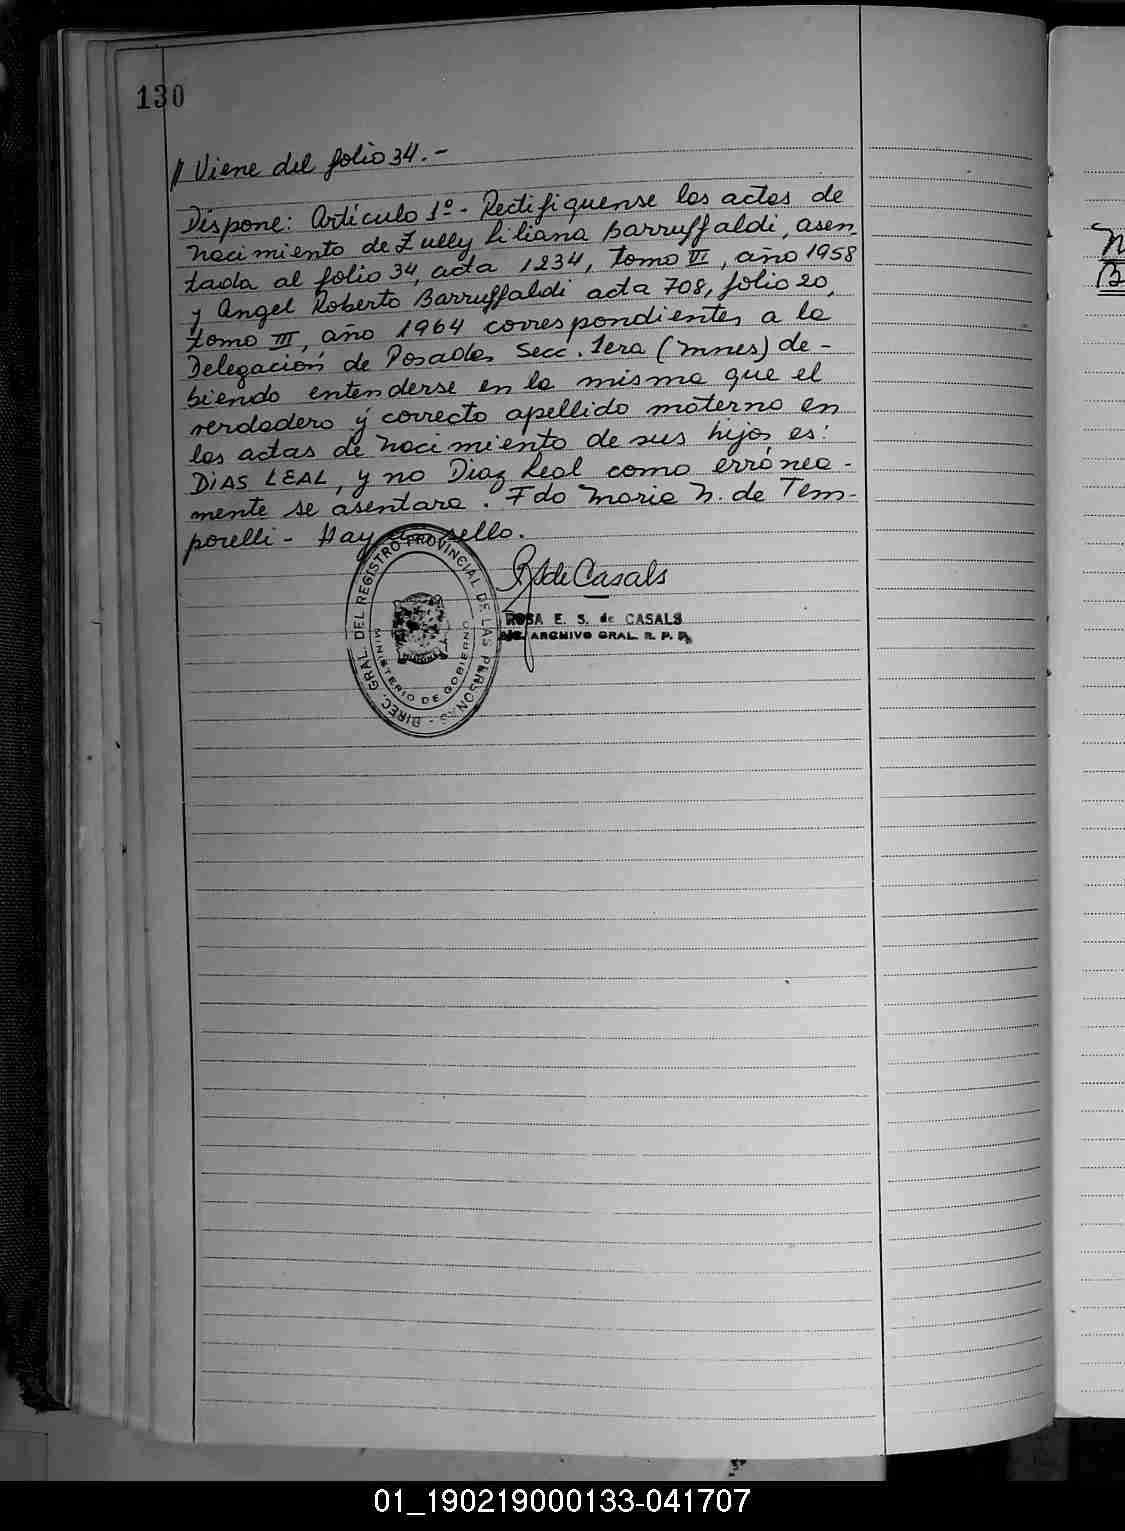 130
// Viene del folio 34.-
Dispone: Artículo 1º- Rectifiquense las actas de
nacimiento de Zully Liliana Barruffaldi, asen
tada al folio 34, acta 1234, tomo VI, año 1958
y Angel Roberto Barruffaldi acta 708, folio 20,
tomo III, año 1964 correspondientes a la
Delegación de Posadas Secc. 1era (Mnes) de-
biendo entenderse en la misma que el
verdadero y correcto apellido materno en
las actas de nacimiento de sus hijos es:
DIAS LEAL, y no Diaz Leal como errónea-
mente se asentara. Fdo Maria N. de Tem-
porelli - Hay un sello.
de Casals
ROSA E. S. de CASALS
ARCHIVO GRAL. R. P. P.
DIREC. GRAL. DEL REGISTRO PROVINCIAL DE LAS PERSONAS -
MINISTERIO DE GOBIERNO
01_190219000133-041707